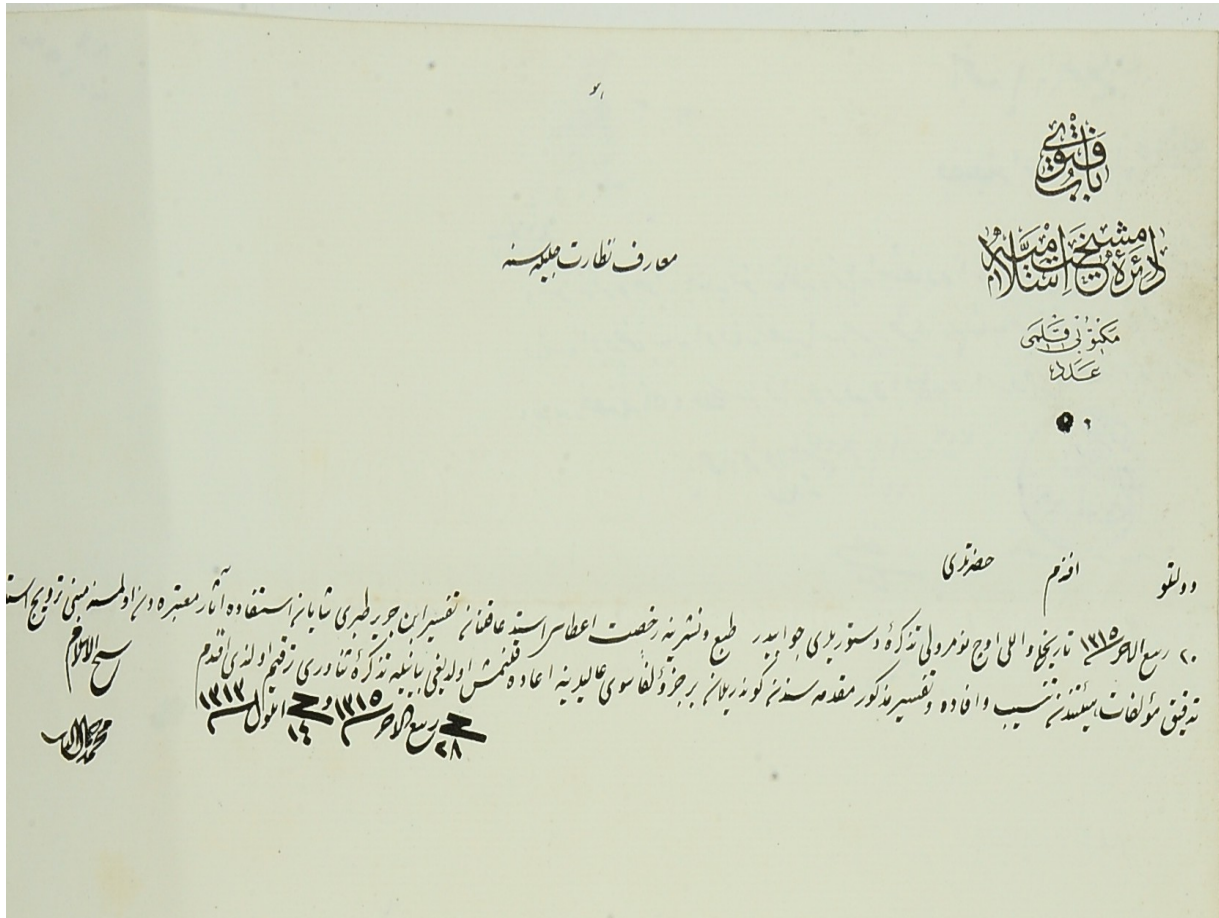 باب فتوى
دائرۀ مشيخت اسلاميه
مكتوبى قلمى
عدد
معارف نظارت جليله سنه
دولتلو افندم حضرتلرى
٢٠ ربيع الاخر سنه ١٣١٥ تاريخلى و اللى اوچ نومرولى تذكرۀ دستوريلرى جوابيدر طبع و نشرينه رخصت اعطاسى استدعا قلنان تفسير ابن جرير طبرى شايان استفاده آثار معتبره دن اولمسنه مبنى ترويج
تدقيق مؤلفات هيئتندن تنسيب و افاده و تفسير مذكور مقدمه سندن كوندريلان بر جزؤ لفا سوى عاليلرينه اعاده قلنمش اولديغى بيانيله تذكرۀ ثناورى ترقيم اولندى افندم
فى ٢٨ ربيع الاخر سنه ١٣١٥ و فى ١٤ ايلول سنه ١٣١٣
شيخ الاسلام
محمد جمال الدين